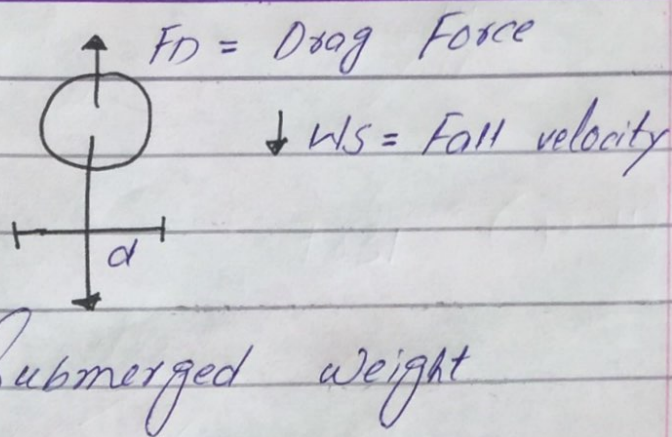 FD = Drag Force
↓ WS = Fall velocity
d
Submerged weight